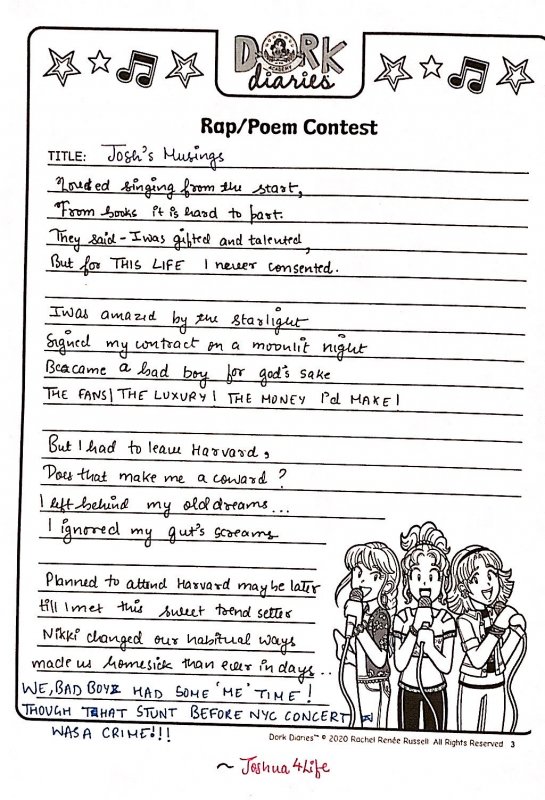 DORK
diaries
Rap/Poem Contest
TITLE: Josh's Musings
Loved singing from the start,
From books it is hard to part.
They said - I was gifted and talented,
But for THIS LIFE I never consented.
I was amazed by the starlight
Signed my contract on a moonlit night
Became a bad boy for god's sake
THE FANS! THE LUXURY! THE MONEY I'd MAKE!
But I had to leave Harvard,
Does that make me a coward?
I left behind my old dreams...
I ignored my gut's screams
Planned to attend Harvard maybe later
till I met this sweet trend setter
Nikki changed our habitual ways
made us homesick than ever in days...
WE, BAD BOYZ HAD SOME 'ME' TIME!
THOUGH THAT STUNT BEFORE NYC CONCERT
WAS A CRIME!!!
Dork Diaries™ © 2020 Rachel Renée Russell All Rights Reserved 3
~ Joshua4Life